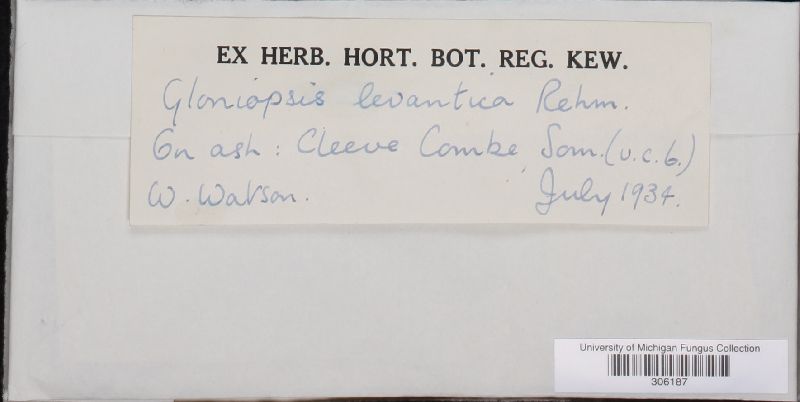 EX HERB. HORT. BOT. REG. KEW.
Gloniopsis levantica Rehm.
On ash: Cleeve Combe, Som. (v.c.6.)
W. Watson. July 1934.
University of Michigan Fungus Collection
306187